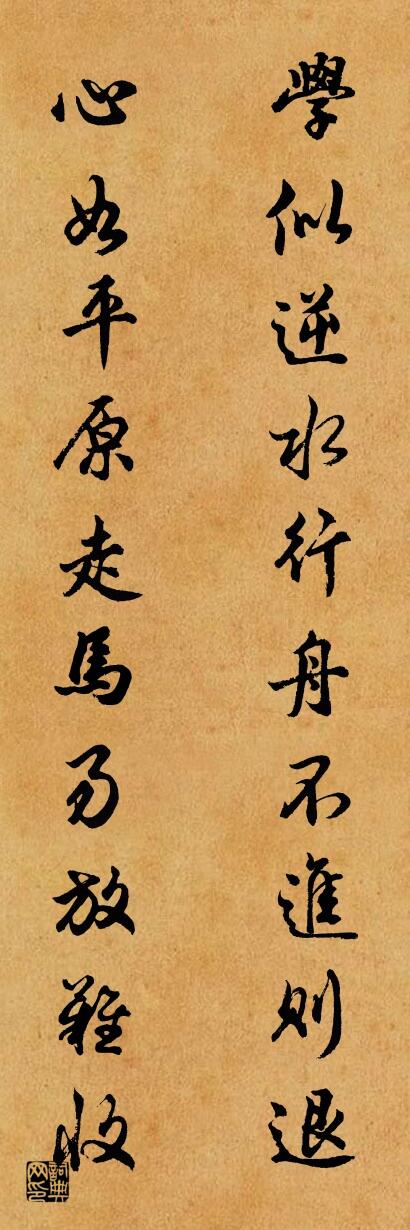 學似逆水行舟不進則退
心如平原走馬易放難收
詞典網印